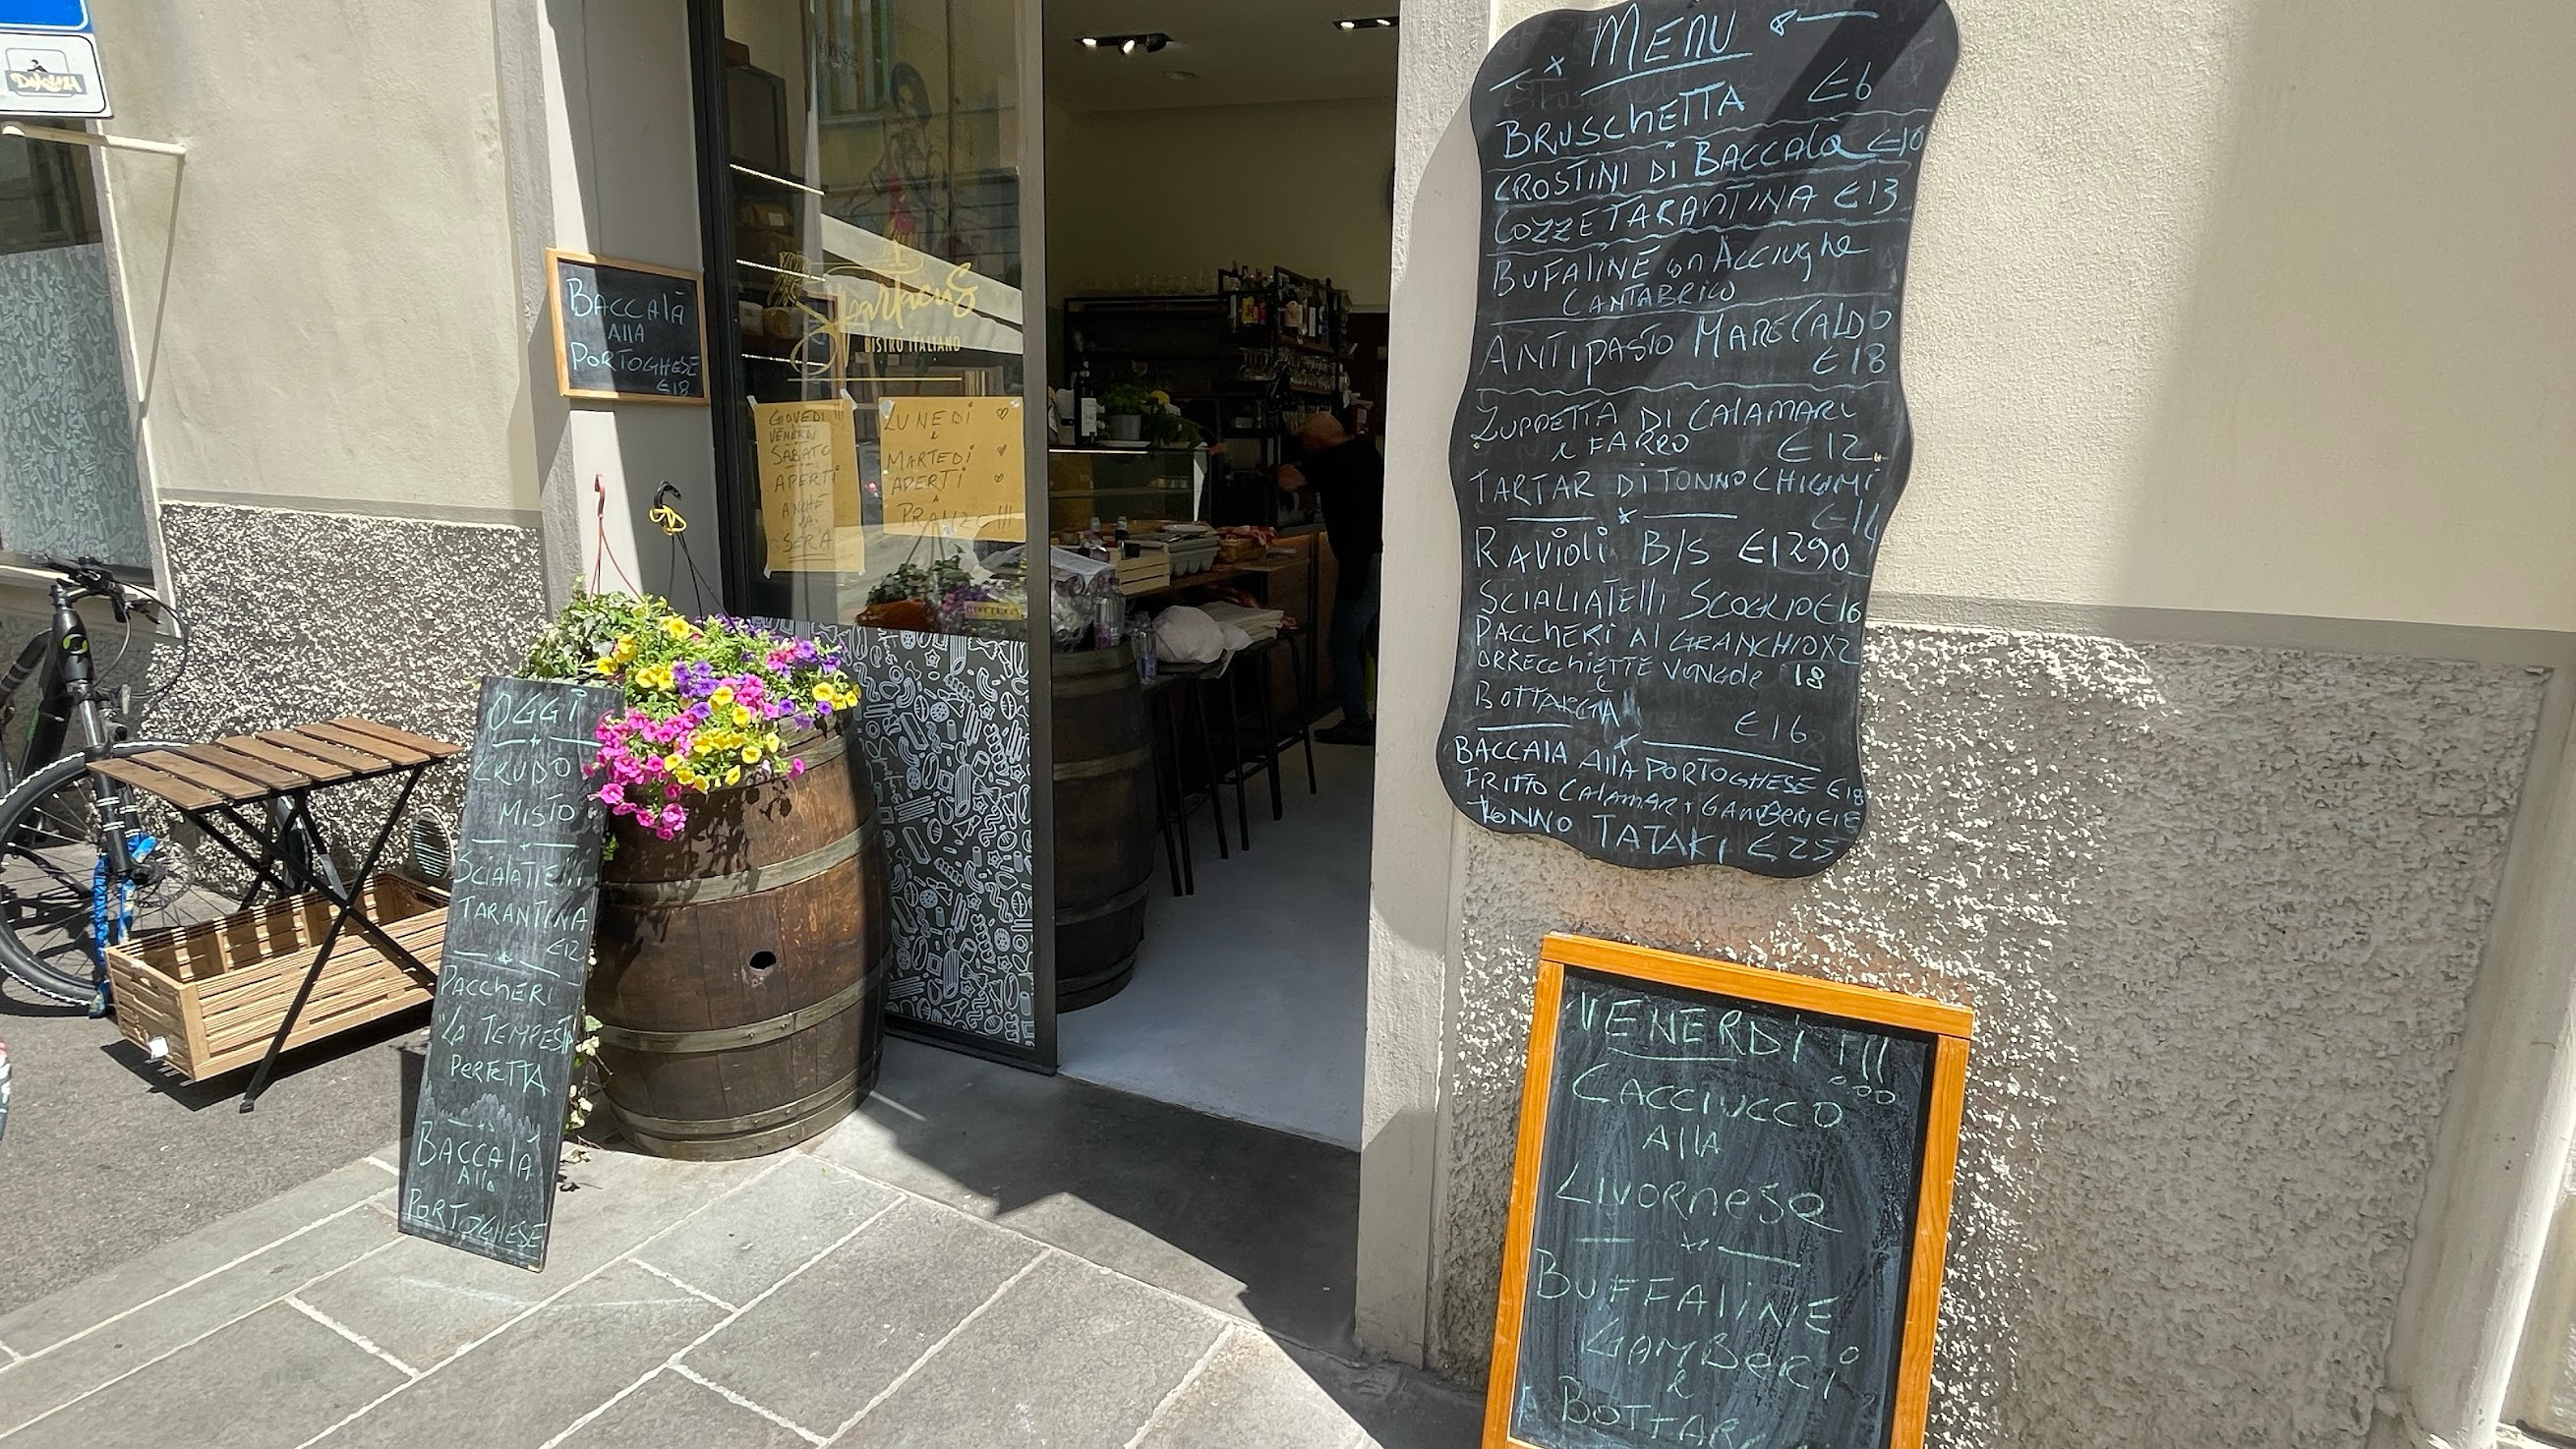 BACCALÀ
AllA
PORTOGHESE
€18
Spartacus
BISTRÒ ITALIANO
GIOVEDI !!!
VENERDI
SABATO
APERTI
ANCHE
LA
SERA
LUNEDI
e
MARTEDI
APERTI
A
PRANZO !!!
OGGI
CRUDO
MISTO
SCIALATTElli
TARANTINA
€12
PACCHERI
"LA TEMPESTA
PERFETTA
BACCALA
Alla
PORTOGHESE
MENU
BRUSCHETTA €6
CROSTINI DI BACCALÀ €10
COZZE TARANTINA €13
BUFALINE con Acciughe
CANTABRICO
ANTIPASTO MARE CALDO
€18
ZUPPETTA DI CALAMARI
e FARRO €12
TARTAR DI TONNO
RAVIOLI B/S €1290
SCIALIATElli SCOGLIO €16
PACCHERI Al GRANCHIO X2
ORRECCHIETTE VONGOLE 18
e
BOTTARGA €16
BACCALA AllA PORTOGHESE €18
FRITTO CALAMARI GAMBERI €18
TONNO TATAKI €25
VENERDI !!!
CACCIUCCO
AllA
LIVORNESE
BUFFALINE
GAMBERI
e
BOTTAR